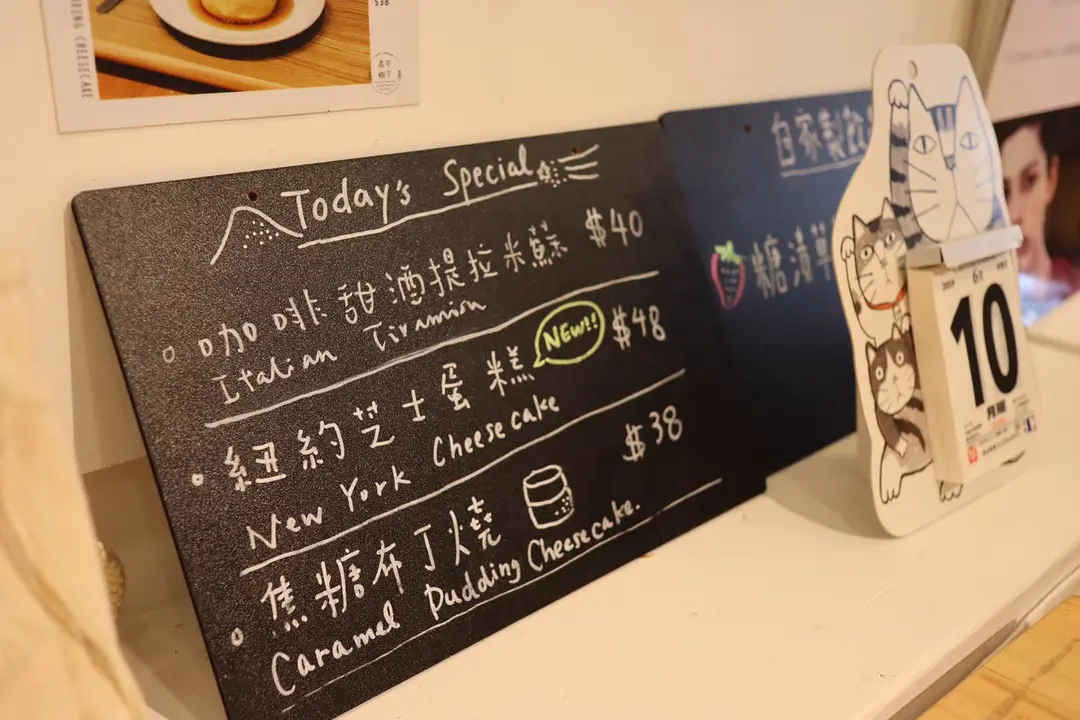 $38
CHEESECAKE
Today's Special
咖啡甜酒提拉米蘇 $40
Italian Tiramisu
紐約芝士蛋糕 NEW!! $48
New York Cheesecake
$38
焦糖布丁燒
Caramel Pudding Cheesecake.
自家製飲
糖漬草
2019 6月
10
月曜